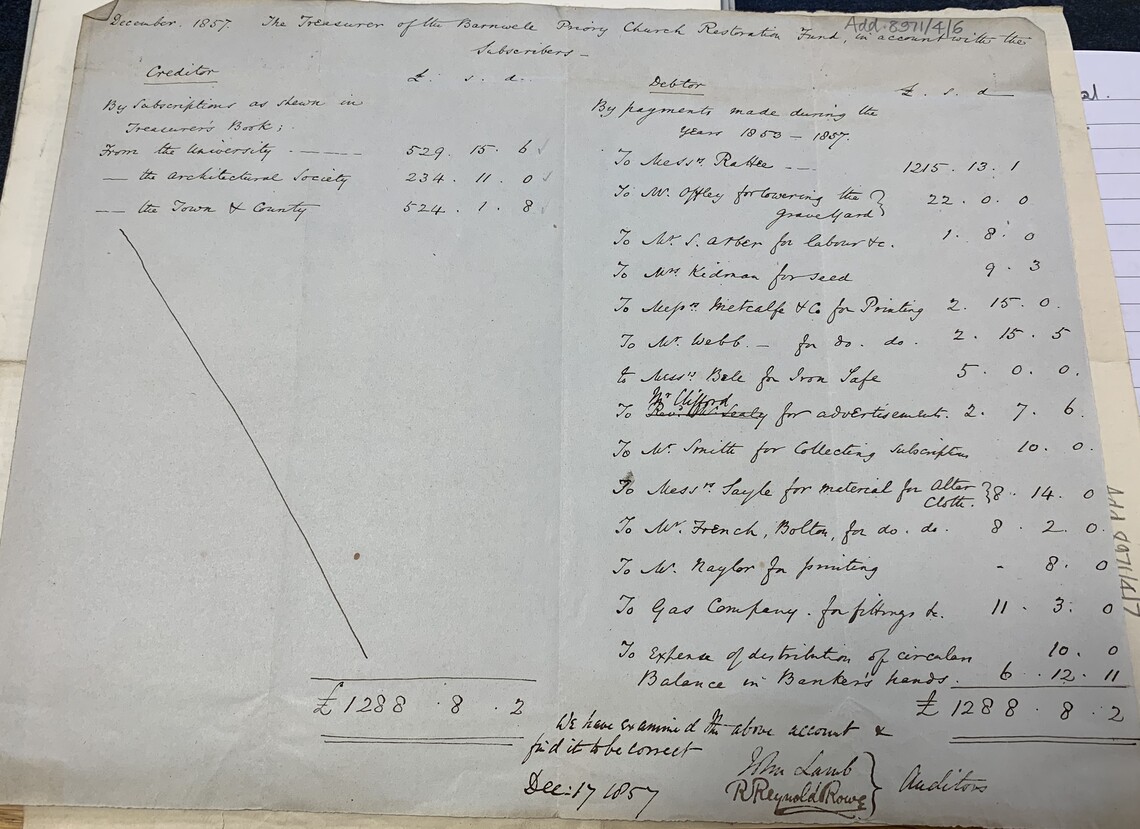 Add. 8971/4/6
December. 1857. The Treasurer of the Barnwele Priory Church Restoration Fund, in account with the
Subscribers —
Creditor £. s. d.
By Subscriptions as shewn in
Treasurer's Book;
From the University . ——— 529. 15. 6
— the Architectural Society 234. 11. 0
—— the Town & County 524. 1. 8
£1288 . 8 . 2
Debtor £. s. d
By payments made during the
Years 1853 — 1857.
To Messrs. Rattee —— 1215. 13. 1
To Mr. Offley for lowering the
graveyard } 22. 0. 0
To Mr. S. Arber for labour &c. 1. 8. 0
To Mrs Kidman for seed 9. 3
To Messrs. Metcalfe & Co for Printing 2. 15. 0.
To Mr. Webb. — for do. do. 2. 15. 5
to Messrs Bele for Iron Safe 5. 0. 0.
Mr Clifford
To for advertisement. 2. 7. 6.
To Mr. Smith for Collecting Subscription 10. 0.
To Messrs. Sayle for material for Alter
Cloth. } 8. 14. 0
To Mr. French, Bolton, for do. do. 8. 2. 0.
To Mr. Naylor for printing - 8. 0
To Gas Company. for fittings &c. 11. 3. 0
To Expense of distribution of circulars 10. 0
Balance in Banker's hands. 6. 12. 11
£ 1288 . 8 . 2
We have examined the above account &
find it to be correct
Dec: 17 1857
John Lamb
R Reynold Rowe } Auditors
Add 8971/4/7
al.